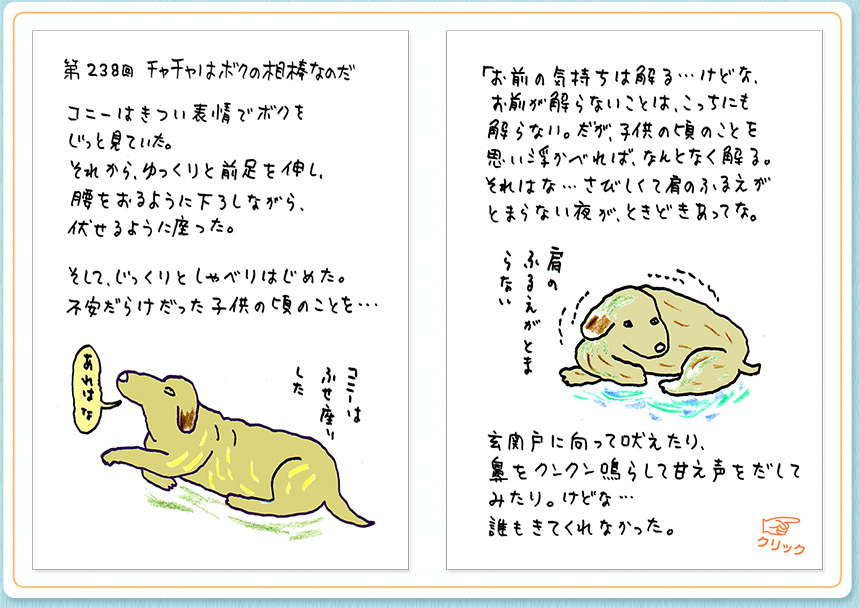 第238回 チャチャはボクの相棒なのだ
コニーはきつい表情でボクを
じっと見ていた。
それから、ゆっくりと前足を伸し、
腰をおるように下ろしながら、
伏せるように座った。
そして、じっくりとしゃべりはじめた。
不安だらけだった子供の頃のことを…
あれはな
コニーは
ふせ座り
した
「お前の気持ちは解る…けどな、
お前が解らないことは、こっちにも
解らない。だが、子供の頃のことを
思い浮かべれば、なんとなく解る。
それはな…さびしくて肩のふるえが
とまらない夜が、ときどきあってな。
肩の
ふるえがとま
らない
玄関戸に向って吠えたり、
鼻をクンクン鳴らして甘え声をだして
みたり。けどな…
誰もきてくれなかった。
クリック